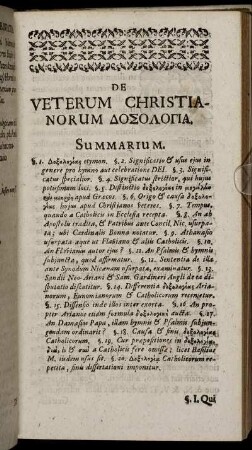 DE
VETERUM CHRISTIA-
NORUM ΔΟΞΟΛΟΓΙΑ,
SUMMARIUM.
§. 1. Δοξολογίας etymon. §. 2. Significatio & usus ejus in
genere pro hymno aut celebratione DEI. §. 3. Signifi-
catus specialior. §. 4. Significatus strictior, qui hujus
potissimum loci. §. 5. Distinctio
apud Græcos. §. 6. Origo & causa δοξολο-
γίας hujus apud Christianos veteres. §. 7. Tempus,
quando a Catholicis in Ecclesia recepta. §. 8. An ab
Apostolis tradita, & Patribus ante Concil. Nic. usurpa-
ta; ubi Cardinalis Bonna notatur. §. 9. Athanasio
usurpata æque ut Flaviano & aliis Catholicis. §. 10.
An Ephraimo autor ejus? §. 11. An Psalmis & hymnis
subjuncta, quod affirmatur. §. 12. Sententia de illa
ante Synodum Nicænam usurpata, examinatur. §. 13.
Sandii Neo-Ariani & Sam. Gardineri Angli de eo dis-
sidium distutitur. §. 14. Differentia δοξολογίας Aria-
norum, Eunomianorum & Catholicorum recenetur.
§. 15. Dissensio inde ibus inter exorta. §. 16. An pro-
pter Arianos etiam formula δοξολογίας aucta. §. 17.
An Damasius Papa, illam hymnis & Psalmis subjun-
gendam ordinarit? §. 18. Causa & finis δοξολογίας
Catholicorum. §. 19. Cur præpositiones in δοξολο-
γίᾳ, & a Catholicis fere omissæ; licet Basilius
M. iisdem usus sit. §. 20. Δοξολογία Catholicorum re-
petita, fini dissertationi imponitur.
§. I. Qui